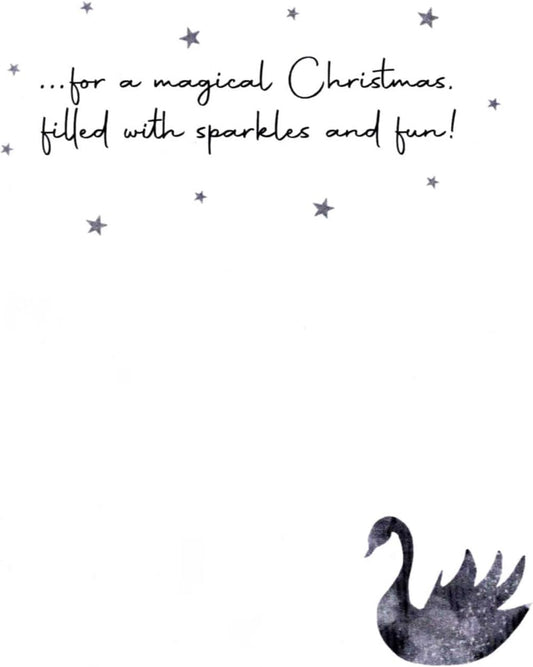 ...for a magical Christmas.
filled with sparkles and fun!